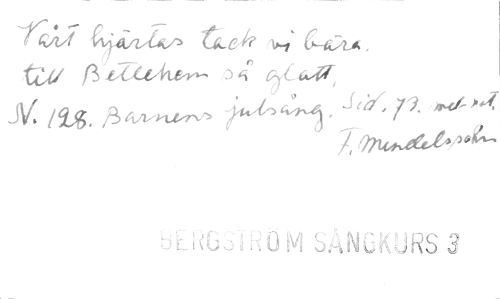 Vårt hjärtas tack vi bära.
till Betlehem så glatt,
N. 128. Barnens julsång. Sid. 73. med not.
F. Mendelssohn
BERGSTRÖM SÅNGKURS 3